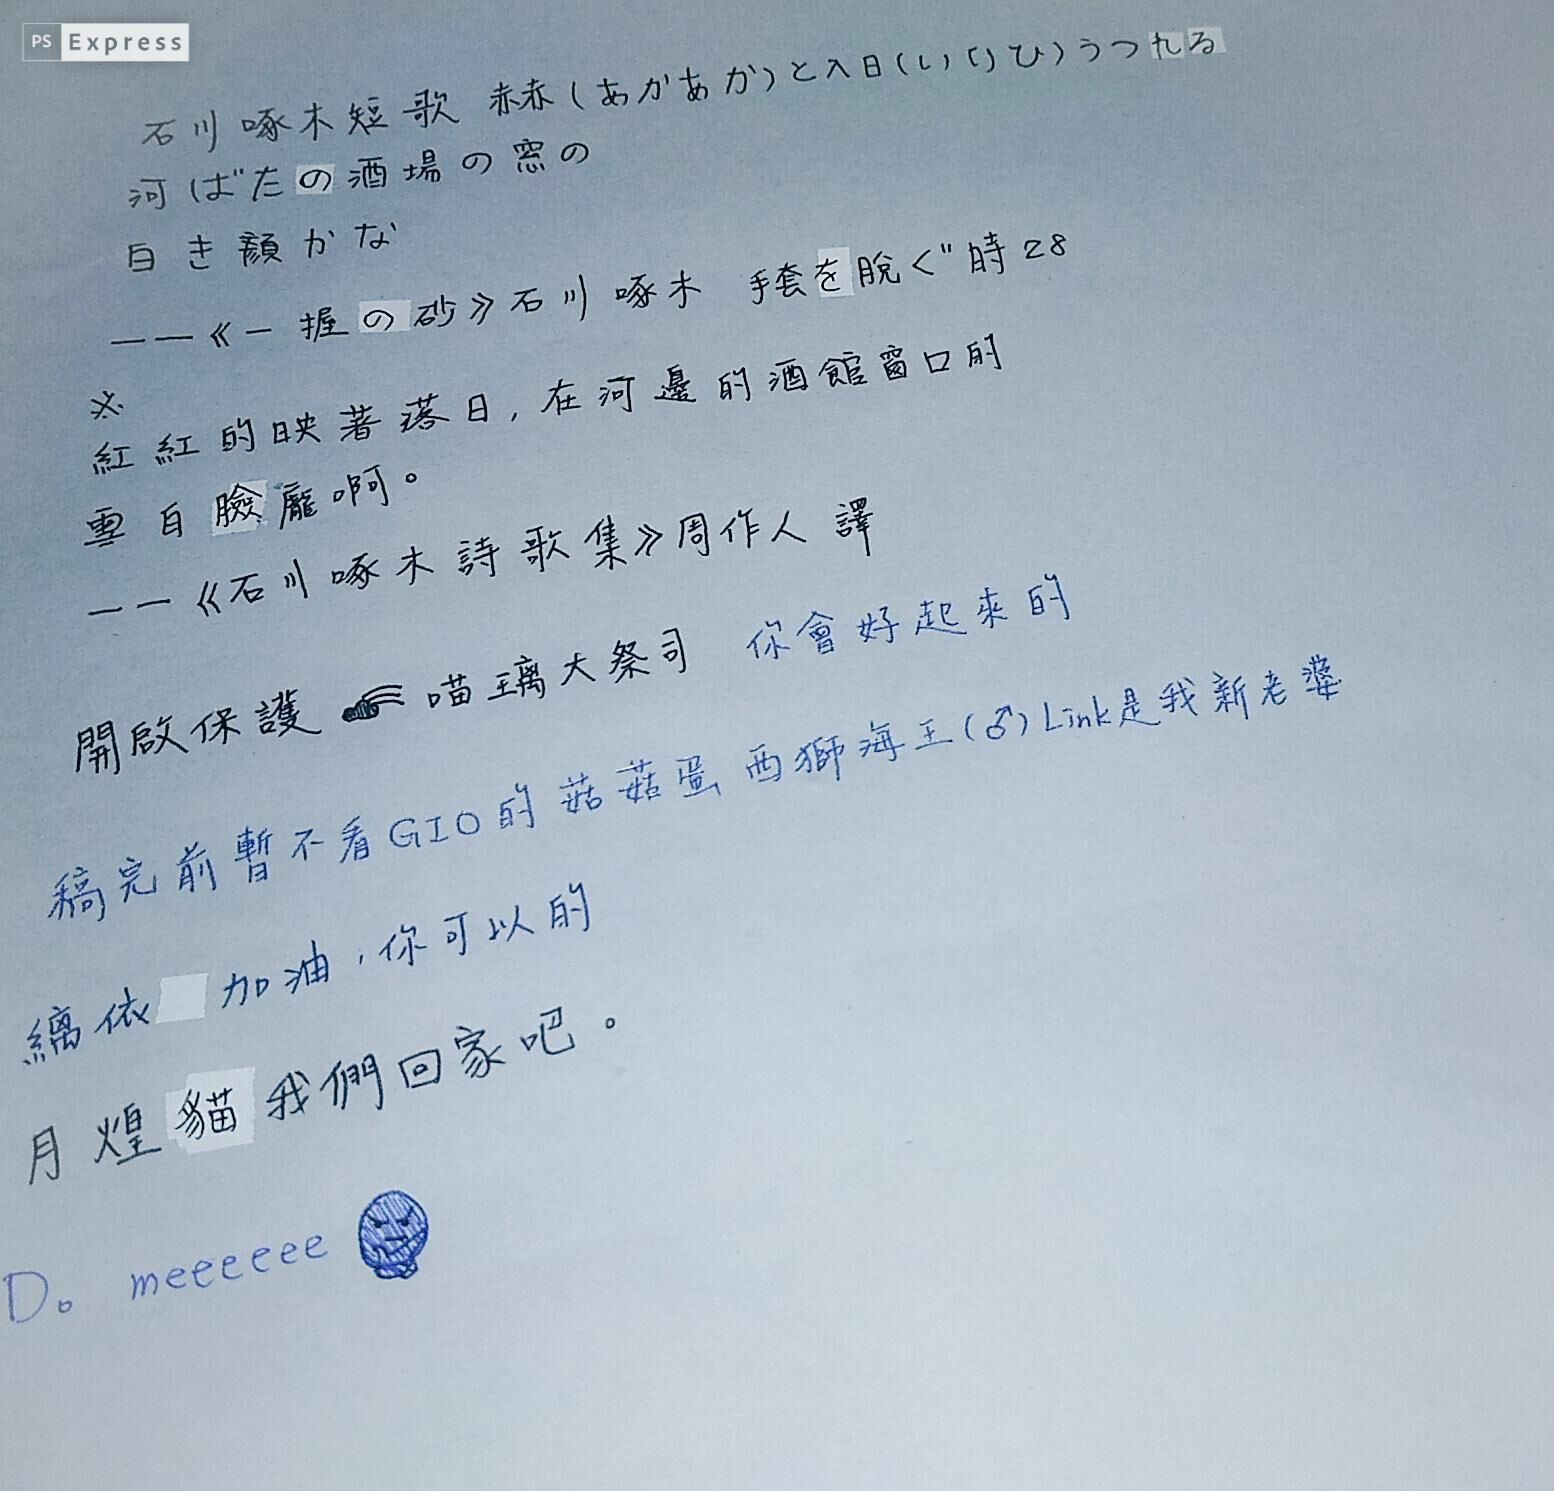 PS Express
石川啄木短歌 赫赫(あかあか)と入日(いりひ)うつれる
河ばたの酒場の窓の
白き顔かな
——《一握の砂》石川啄木 手套を脱ぐ時28
※
紅紅的映著落日,在河邊的酒館窗口的
雪白臉龐啊。
——《石川啄木詩歌集》周作人 譯
開啟保護 喵璃大祭司 你會好起來的
稿完前暫不看GIO的菇菇蛋 西獅海王(♂)Link是我新老婆
縭依 加油,你可以的
月煌貓我們回家吧。
D。 meeeeee